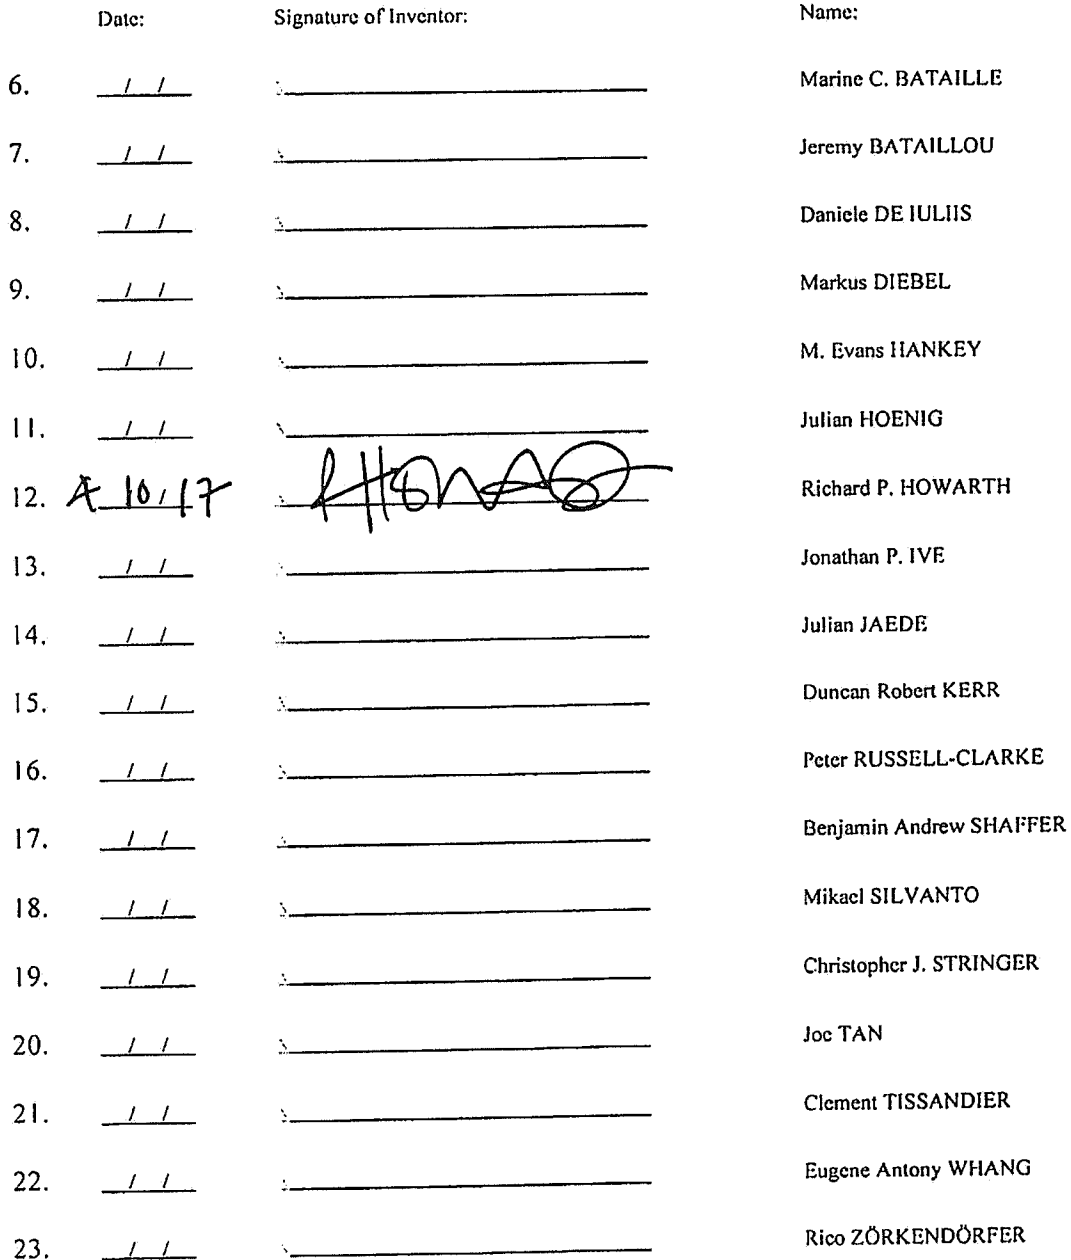 Date: Signature of Inventor: Name:
6. / / Marine C. BATAILLE
7. / / Jeremy BATAILLOU
8. / / Daniele DE IULIIS
9. / / Markus DIEBEL
10. / / M. Evans HANKEY
11. / / Julian HOENIG
12. 4 10 / 17 Richard P. HOWARTH
13. / / Jonathan P. IVE
14. / / Julian JAEDE
15. / / Duncan Robert KERR
16. / / Peter RUSSELL-CLARKE
17. / / Benjamin Andrew SHAFFER
18. / / Mikael SILVANTO
19. / / Christopher J. STRINGER
20. / / Joe TAN
21. / / Clement TISSANDIER
22. / / Eugene Antony WHANG
23. / / Rico ZÖRKENDÖRFER